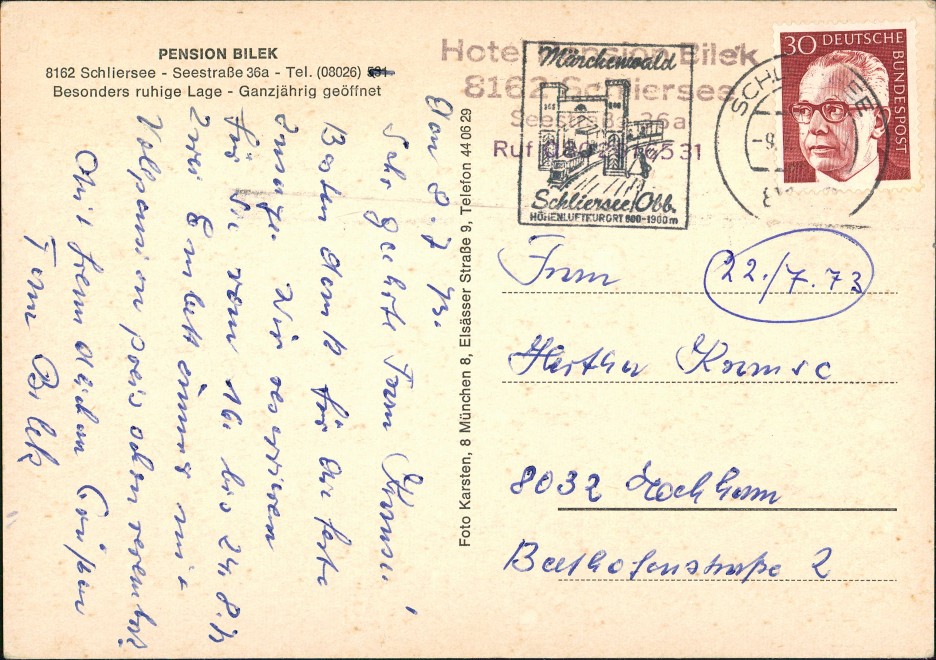 PENSION BILEK
8162 Schliersee - Seestraße 36a - Tel. (08026) 531
Besonders ruhige Lage - Ganzjährig geöffnet
Hotel Pension Bilek
8162 Schliersee
Seestraße 36a
Ruf 6531
Märchenwald
Schliersee/Obb.
HÖHENLUFTKURORT 800-1900 m
SCHLIERSEE
30 DEUTSCHE
BUNDESPOST
Don 8.7 73.
Sehr geehrte Frau
Besten Dank für Ihre feste
Zusage. Wir reservieren
für Sie vom 16. bis 24.8.73
zwei Einbettzimmer mit
Vollpension
Mit freundlichen Grüßen
Frau Bilek
Foto Karsten, 8 München 8, Elsässer Straße 9, Telefon 44 06 29
Frau
22./7.73
Hertha
8032 Lochham
Beethofenstraße 2